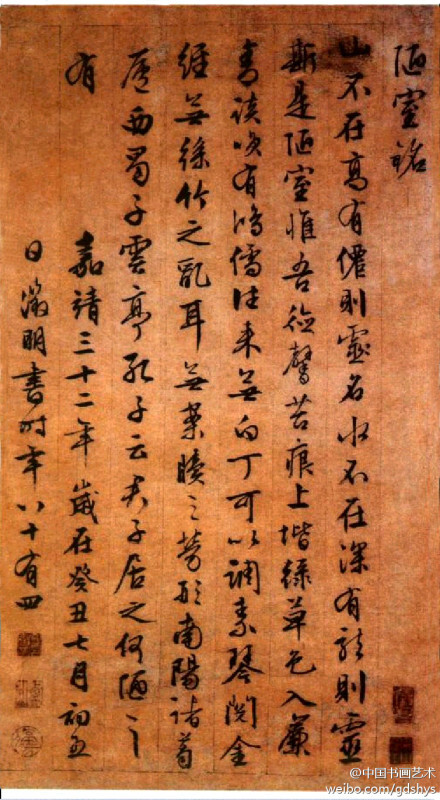 陋室銘
山不在高有僊則靈名水不在深有龍則靈
斯是陋室惟吾德馨苔痕上堦綠草色入簾
青談笑有鴻儒往来無白丁可以調素琴閱金
經無絲竹之亂耳無案牘之勞形南陽諸葛
廬西蜀子雲亭孔子云君子居之何陋之
有 嘉靖三十二年歲在癸丑七月初五
日徵明書時年八十有四
@中国书画艺术
weibo.com/gdshys